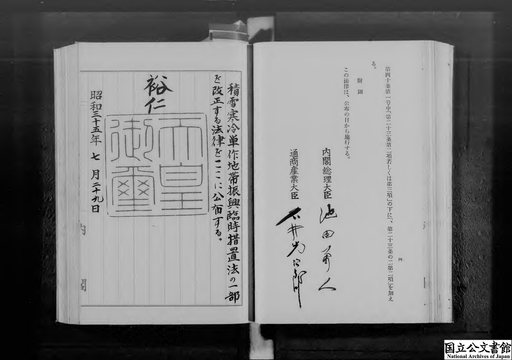 る。
第四十条第一号中「第二十三条第二項若しくは第三項」の下に「、第二十三条の二第二項」を加え
附則
この法律は、公布の日から施行する。
内閣総理大臣 池田勇人
通商産業大臣 石井光次郎
四
積雪寒冷単作地帯振興臨時措置法の一部
を改正する法律をここに公布する。
裕仁
天皇御璽
昭和三十五年七月二十九日
国立公文書館
National Archives of Japan